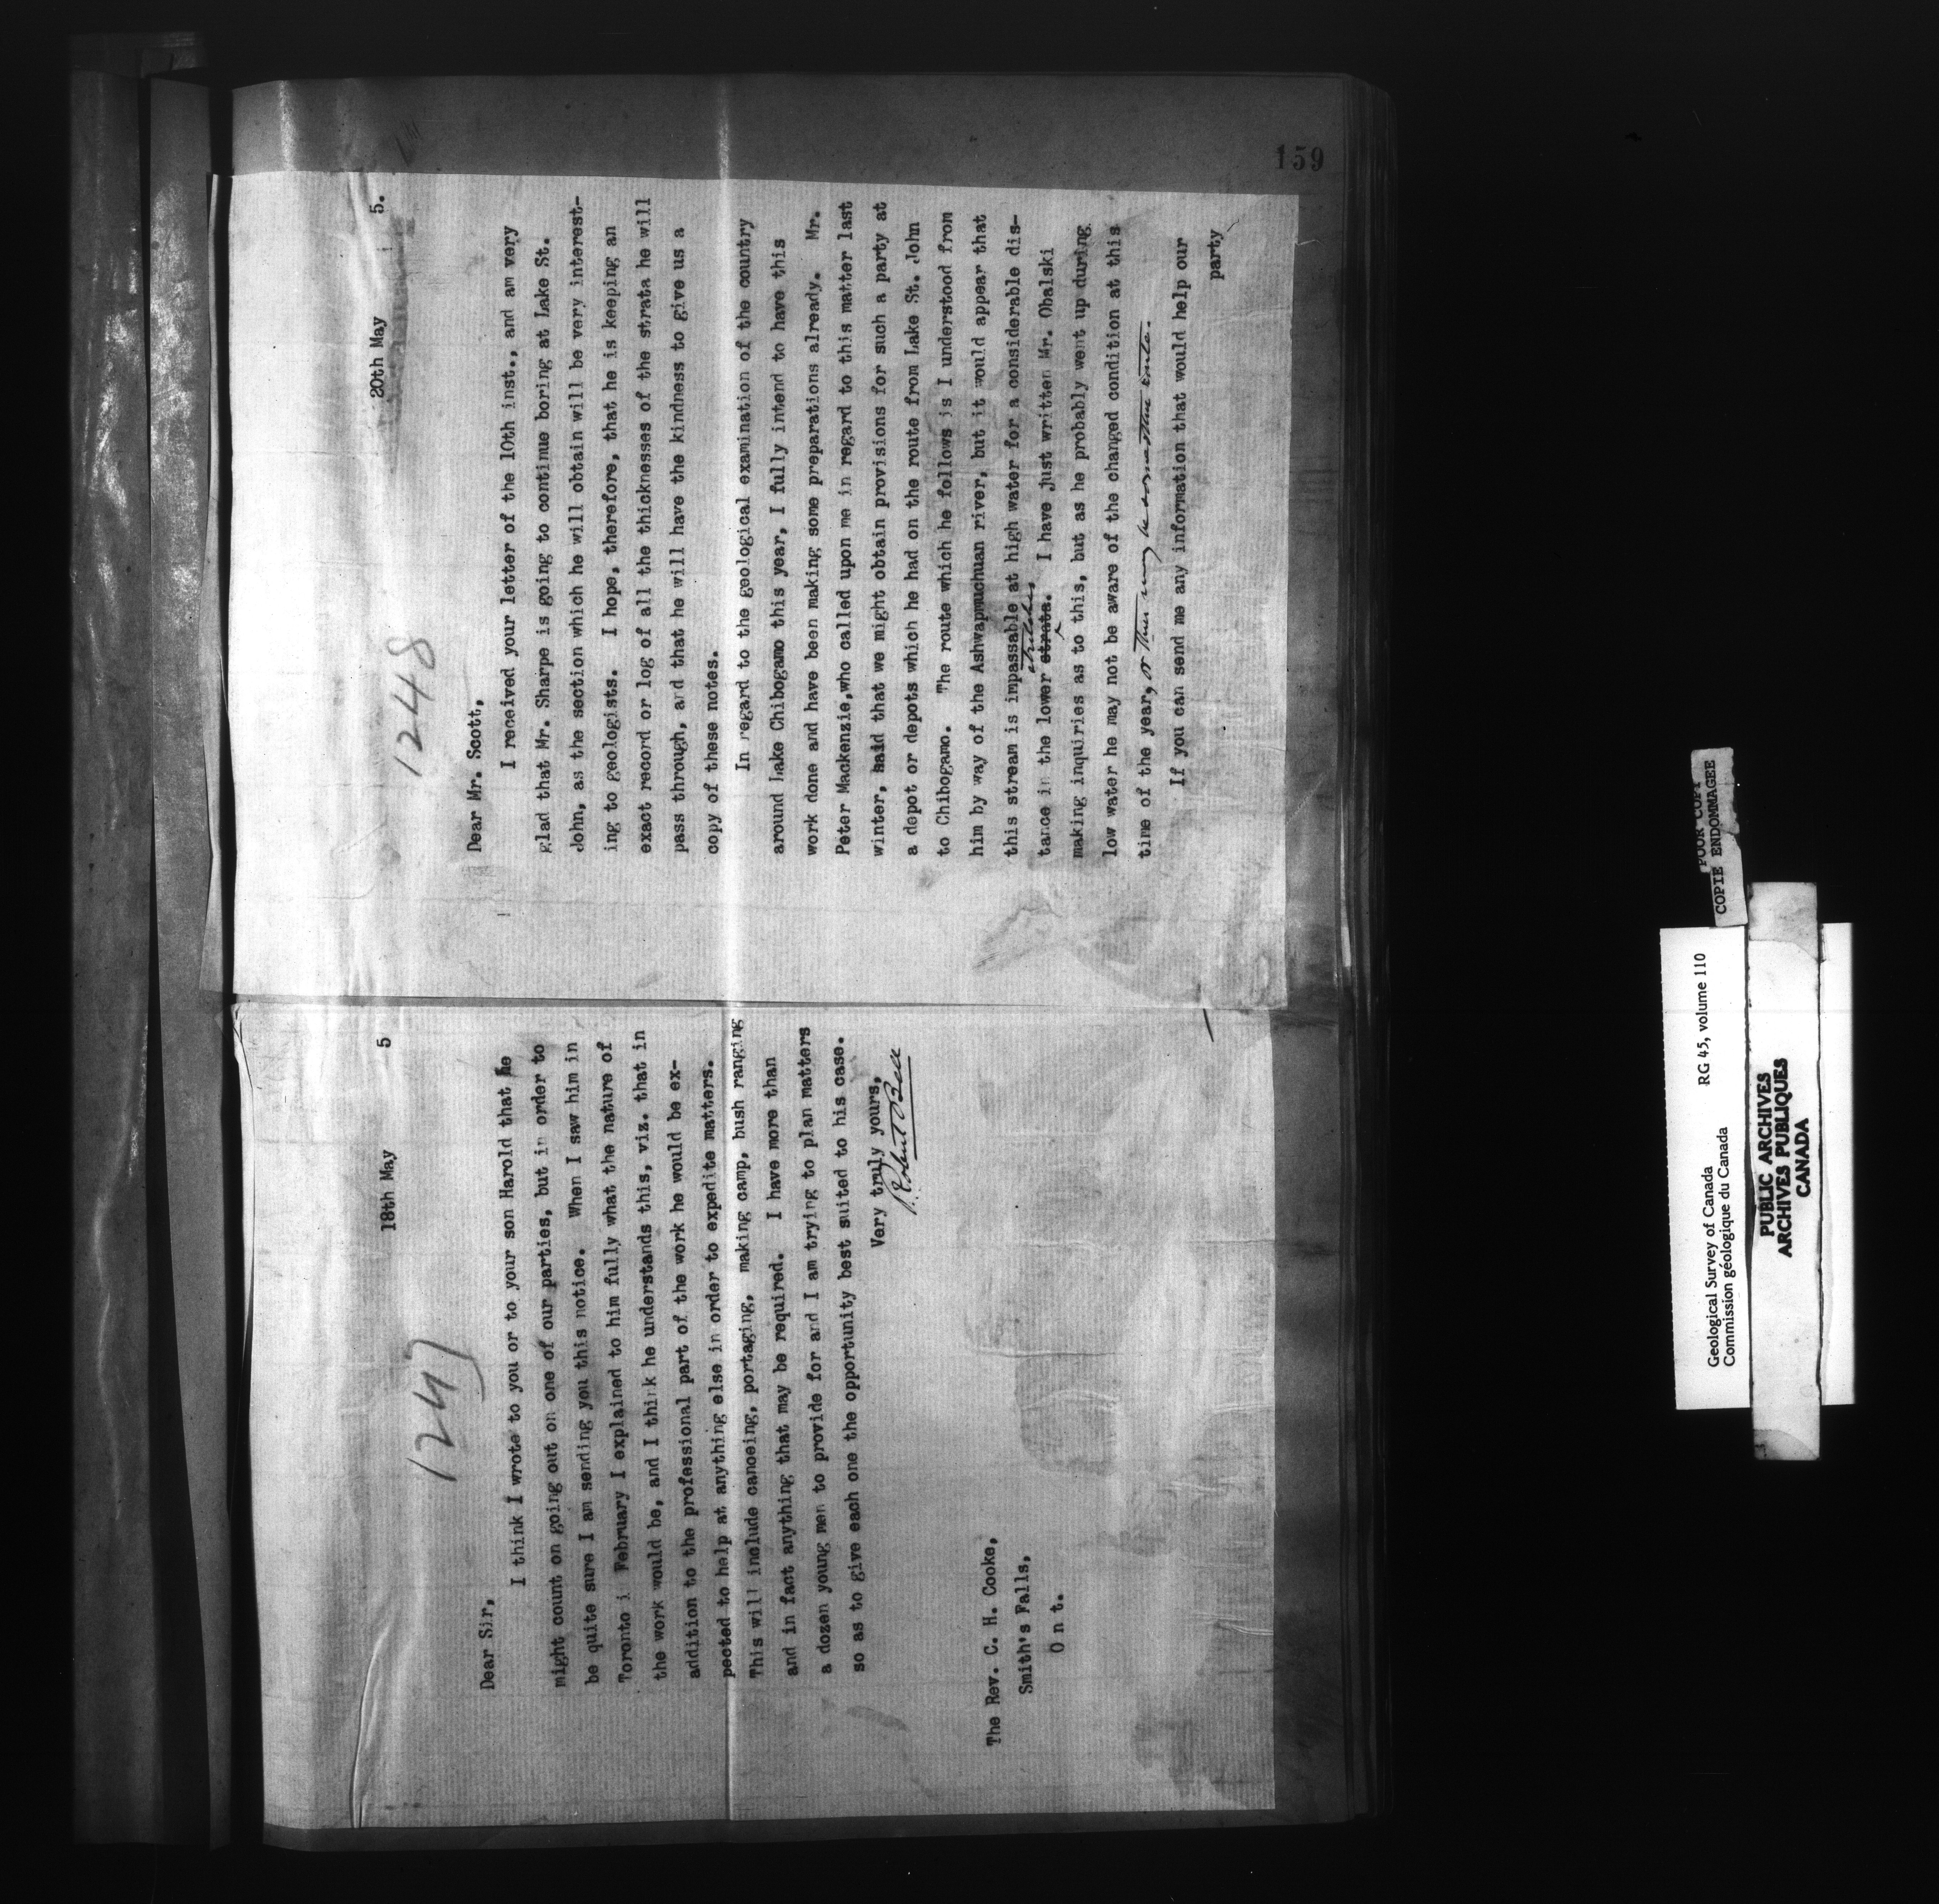 18th May 5
1247
Dear Sir,
I think I wrote to you or to your son Harold that he
might count on going out on one of our parties, but in order to
be quite sure I am sending you this notice. When I saw him in
Toronto i February I explained to him fully what the nature of
the work would be, and I think he understands this, viz. that in
addition to the professional part of the work he would be ex-
pected to help at anything else in order to expedite matters.
This will include canoeing, portaging, making camp, bush ranging
and in fact anything that may be required. I have more than
a dozen young men to provide for and I am trying to plan matters
so as to give each one the opportunity best suited to his case.
Very truly yours,
Robert Bell
The Rev. C. H. Cooke,
Smith's Falls,
O n t.
159
20th May 5.
1248
Dear Mr. Scott,
I received your letter of the 10th inst., and am very
glad that Mr. Sharpe is going to continue boring at Lake St.
John, as the section which he will obtain will be very interest-
ing to geologists. I hope, therefore, that he is keeping an
exact record or log of all the thicknesses of the strata he will
pass through, and that he will have the kindness to give us a
copy of these notes.
In regard to the geological examination of the country
around Lake Chibogamo this year, I fully intend to have this
work done and have been making some preparations already. Mr.
Peter Mackenzie,who called upon me in regard to this matter last
winter, said that we might obtain provisions for such a party at
a depot or depots which he had on the route from Lake St. John
to Chibogamo. The route which he follows is I understood from
him by way of the Ashwapmuchuan river, but it would appear that
this stream is impassable at high water for a considerable dis-
stretches,
tance in the lower strata. I have just written Mr. Obalski
making inquiries as to this, but as he probably went up during
low water he may not be aware of the changed condition at this
time of the year, or there may be some other route.
If you can send me any information that would help our
party
Geological Survey of Canada RG 45, volume 110
Commission géologique du Canada
POOR COPY
COPIE ENDOMMAGEE
PUBLIC ARCHIVES
ARCHIVES PUBLIQUES
CANADA